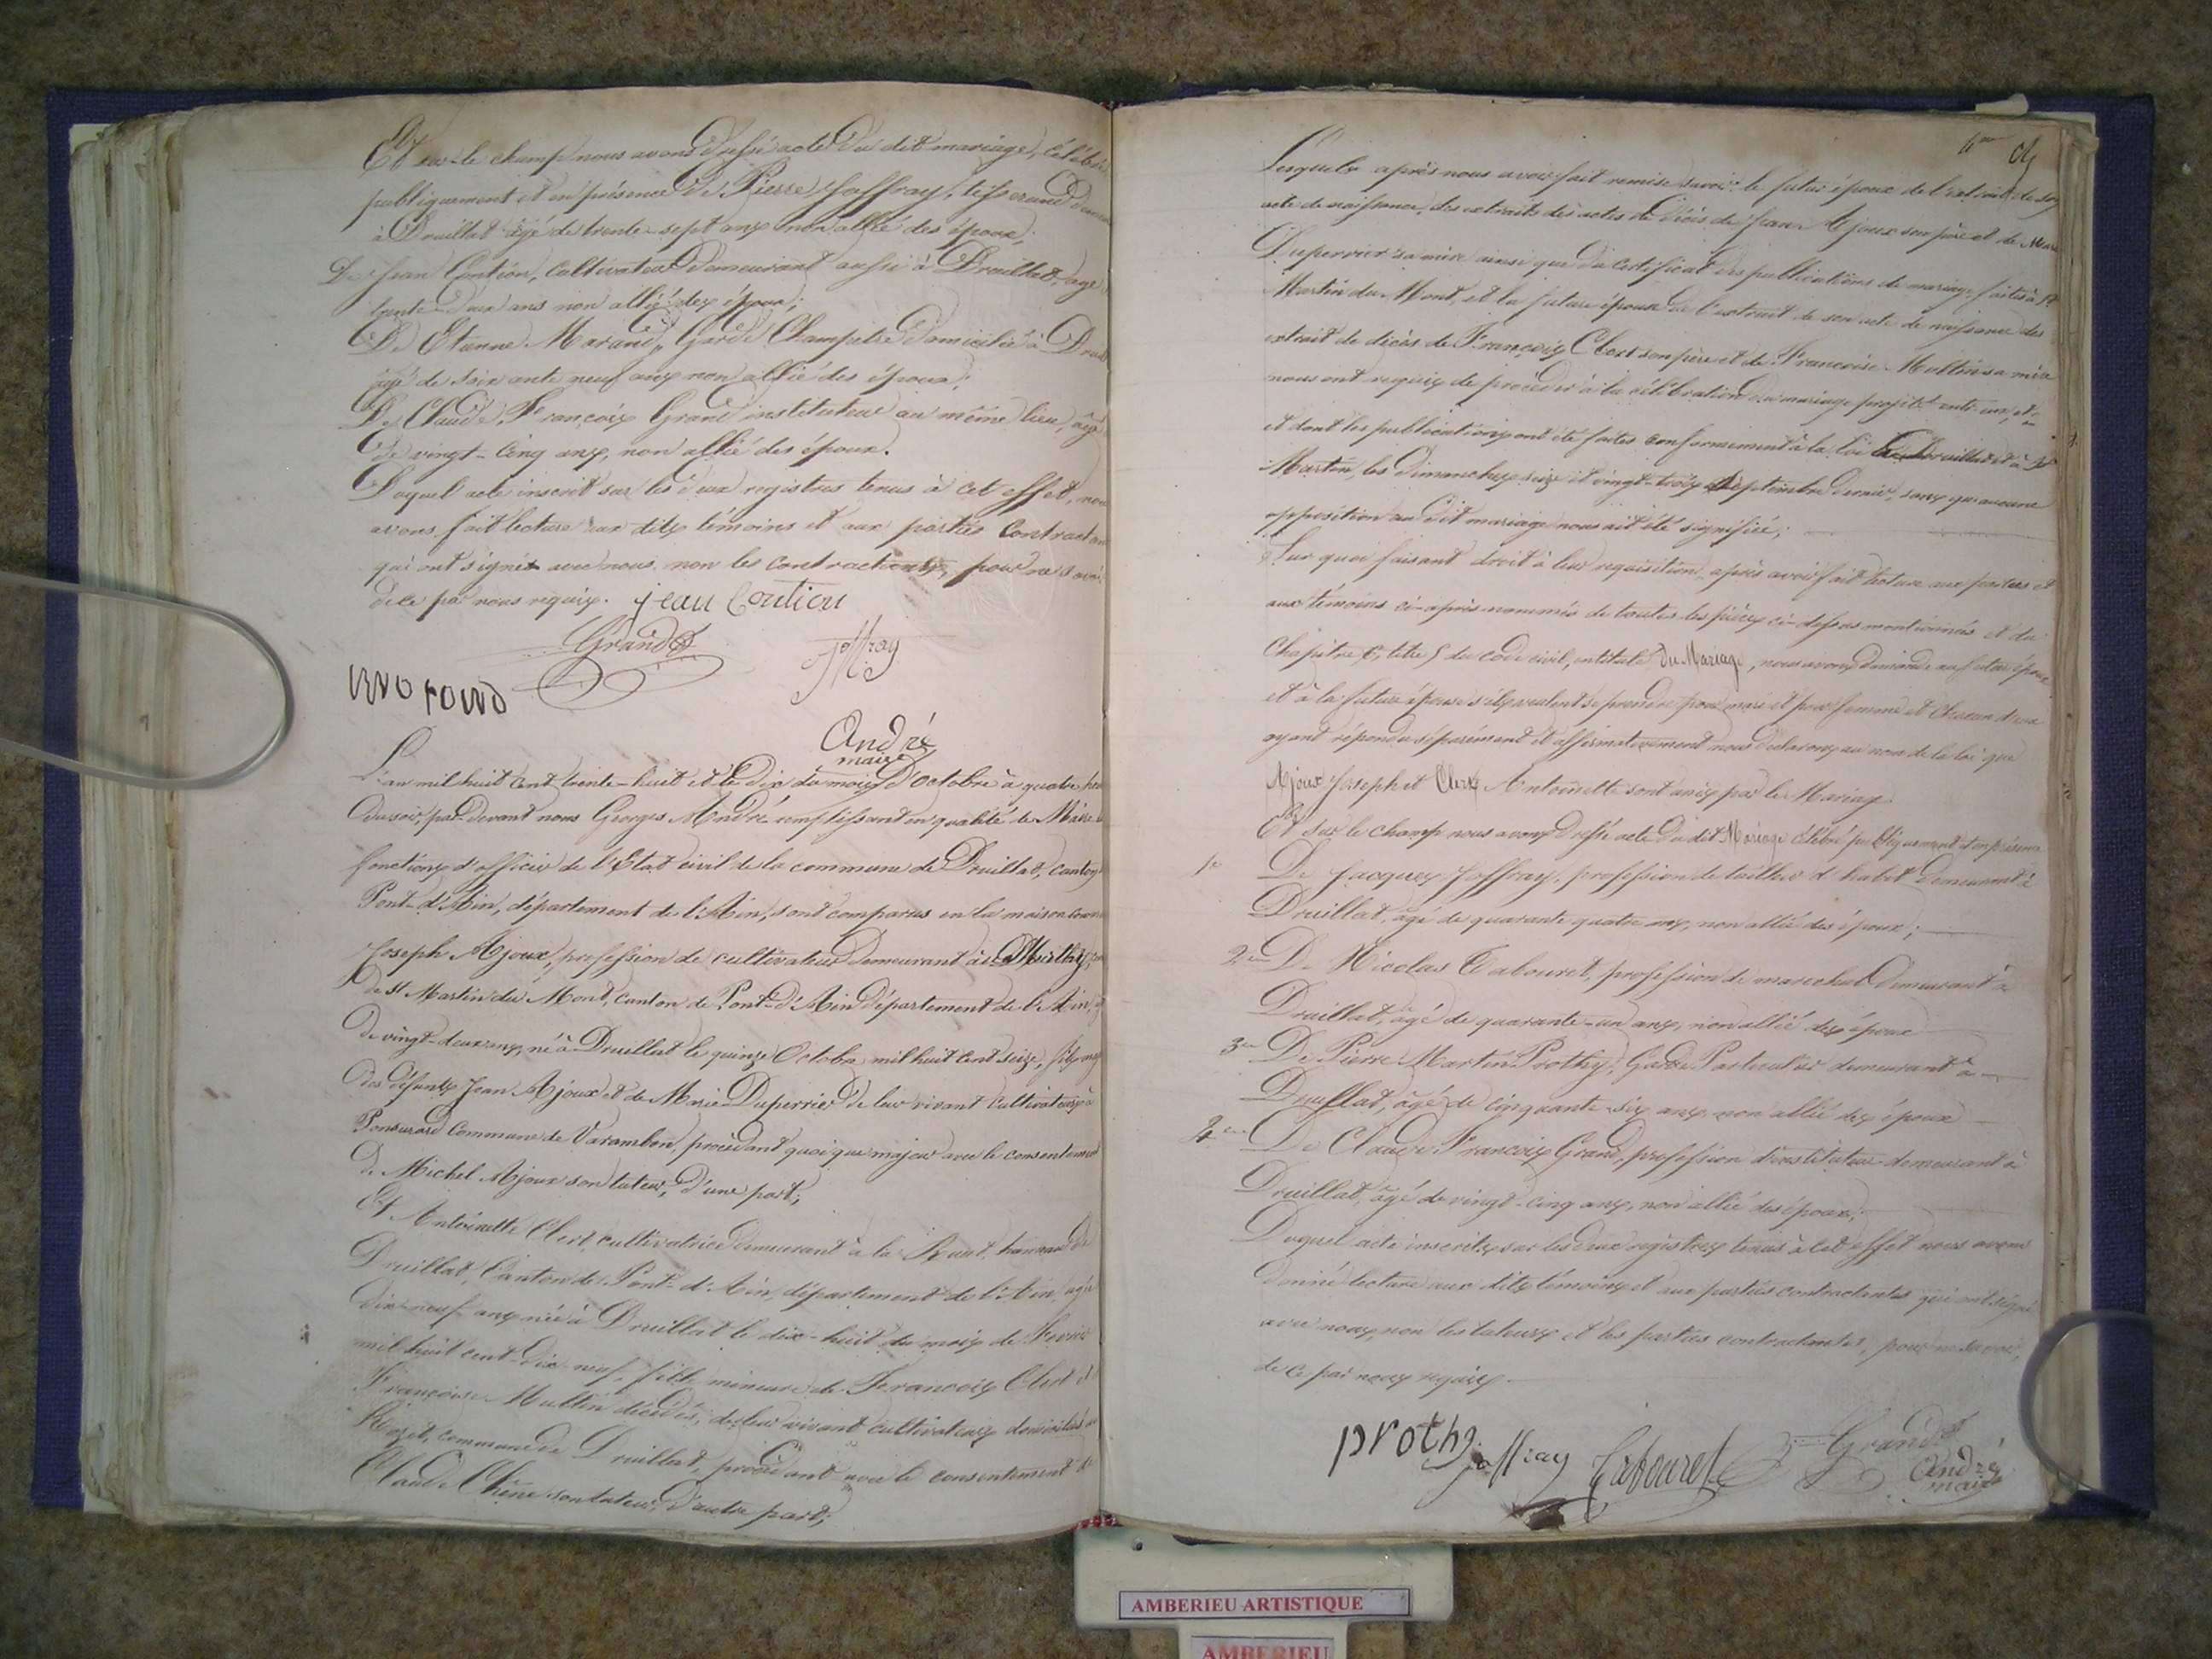 Et sur-le champ nous avons dressé acte du dit mariage, célébré
publiquement et en présence de Pierre Joffray, tisserand
à Druillat âgé de trente-sept ans non allié des époux;
De Jean Contion, Cultivateur Demeurant aussi à Druillat, âgé
trente-deux ans non allié des époux;
De Etienne Marand, Garde Champêtre Domicilié à
âgé de soixante neuf ans non allié des époux;
De Claude François Grand instituteur au même lieu, âgé
de vingt-cinq ans, non allié des époux.
Duquel acte inscrit sur les deux registres tenus à cet effet, nous
avons fait lecture aux dits témoins et aux parties
qui ont signés avec nous, non les contractants, pour ne savoir
de ce par nous requis. jean Contion
Grand Joffray
André
maire
L'an mil huit cent trente-huit et le dix du mois d'Octobre à quatre
du soir, par devant nous Georges André remplissant en qualité de Maire
fonctions d'officier de l'Etat civil de la commune de Druillat, canton
Pont-d'Ain, département de l'Ain, sont comparus en la maison
Joseph Ajoux, profession de cultivateur demeurant à
de St Martin du Mont, canton de Pont-d'Ain département de l'Ain,
de vingt-deux ans, né à Druillat le quinze Octobre mil huit cent seize, fils
des défunts Jean Ajoux et de Marie Duperrier de leur vivant cultivateurs à
commune de Varambon, procédant quoique majeur avec le consentement
de Michel Ajoux son tuteur, d'une part;
Et Antoinette Clert, cultivatrice demeurant à la hameau de
Druillat, Canton de Pont-d'Ain, département de l'Ain, âgée
dix-neuf ans née à Druillat le dix-huit du mois de Février
mil huit cent-dix neuf, fille mineure de François Clert et
Françoise Multin décédés, de leur vivant cultivateurs domiciliés
commune de Druillat, procédant avec le consentement de
Claude Chêne son tuteur, d'autre part;
Lesquels après nous avoir fait remise savoir: le futur époux de l'extrait de son
acte de naissance, des extraits des actes de décès de Jean Ajoux son père et de Marie
Duperrier sa mère ainsi que du certificat des publications de mariage faites à St
Martin du Mont, et la future épouse de l'extrait de son acte de naissance des
extrait de décès de François Clert son père et de Françoise Multin sa mère
nous ont requis de procéder à la célébration du mariage projeté entre eux, et
et dont les publications ont été faites conformément à la loi à Druillat et à St
Martin, les Dimanches seize et vingt-trois Septembre dernier, sans qu'aucune
opposition au dit mariage nous ait été signifiée;
Sur quoi faisant droit à leur requisition, après avoir fait lecture aux parties et
aux témoins ci-après nommés de toutes les pièces ci-dessus mentionnées et du
Chapitre 6, titre 5 du code civil, intitulé du Mariage, nous avons demandé au futur époux
et à la future épouse s'ils veulent se prendre pour mari et pour femme et chacun d'eux
ayant répondu séparément et affirmativement nous déclarons au nom de la loi que
Ajoux Joseph et Clert Antoinette sont unis par le Mariage
Et sur le champ nous avons dressé acte du dit Mariage célébré publiquement et en présence
1o De Jacques Joffray, profession de tailleur d'habit demeurant à
Druillat, âgé de quarante quatre ans, non allié des époux;
2em De Nicolas Tabouret, profession de marechal demeurant à
Druillat, âgé de quarante-un ans, non allié des époux
3em De Pierre Martin Prothy, Garde Particulier demeurant à
Druillat, âgé de cinquante-six ans non allié des époux
4em De Claude François Grand, profession d'instituteur demeurant à
Druillat, âgé de vingt-cinq ans, non allié des époux;
Duquel acte inscrits sur les deux registres tenus à cet effet nous avons
donné lecture aux dits témoins et aux parties contractantes qui ont signé
avec nous, non les tuteurs et les parties contractantes, pour ne savoir,
de ce par nous requis.
prothy Joffray Tabouret Grand
André
maire
AMBERIEU ARTISTIQUE
AMBERIEU